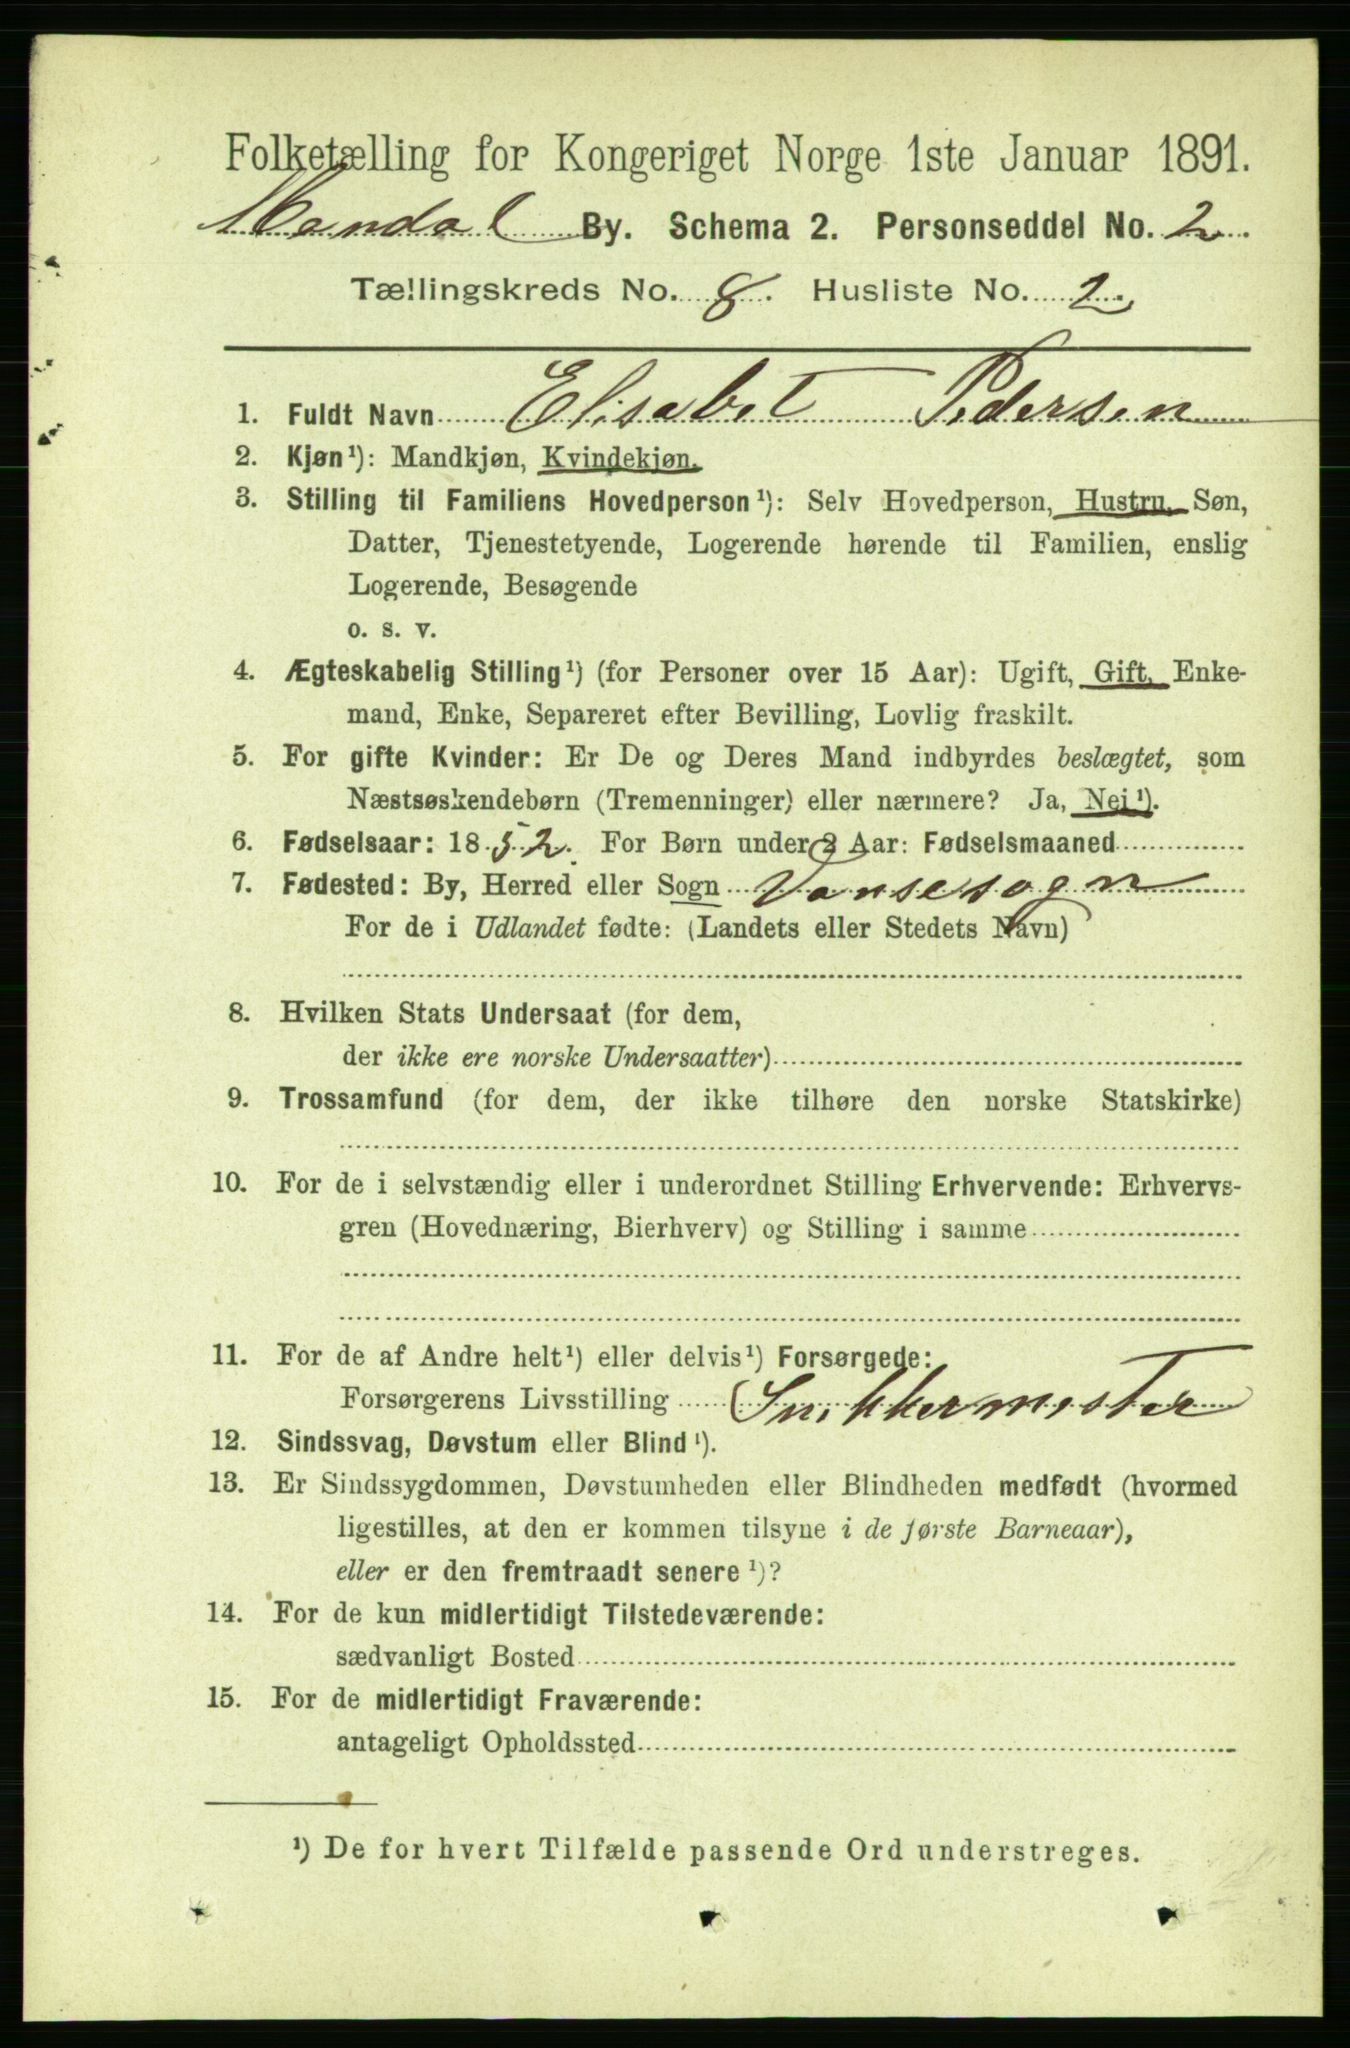 Folketælling for Kongeriget Norge 1ste Januar 1891.
Mandal By. Schema 2. Personseddel No. 2.
Tællingskreds No. 8. Husliste No. 2.
1. Fuldt Navn Elisabet Pedersen
2. Kjøn¹): Mandkjøn, Kvindekjøn.
3. Stilling til Familiens Hovedperson¹): Selv Hovedperson, Hustru, Søn,
Datter, Tjenestetyende, Logerende hørende til Familien, enslig
Logerende, Besøgende
o. s. v.
4. Ægteskabelig Stilling¹) (for Personer over 15 Aar): Ugift, Gift, Enke-
mand, Enke, Separeret efter Bevilling, Lovlig fraskilt.
5. For gifte Kvinder: Er De og Deres Mand indbyrdes beslægtet, som
Næstsøskendebørn (Tremenninger) eller nærmere? Ja, Nei¹).
6. Fødselsaar: 1852. For Børn under 2 Aar: Fødselsmaaned
7. Fødested: By, Herred eller Sogn Vansesogn
For de i Udlandet fødte: (Landets eller Stedets Navn)
8. Hvilken Stats Undersaat (for dem,
der ikke ere norske Undersaatter)
9. Trossamfund (for dem, der ikke tilhøre den norske Statskirke)
10. For de i selvstændig eller i underordnet Stilling Erhvervende: Erhvervs-
gren (Hovednæring, Bierhverv) og Stilling i samme
11. For de af Andre helt¹) eller delvis¹) Forsørgede:
Forsørgerens Livsstilling (Snikkermester
12. Sindssvag, Døvstum eller Blind¹).
13. Er Sindssygdommen, Døvstumheden eller Blindheden medfødt (hvormed
ligestilles, at den er kommen tilsyne i de første Barneaar),
eller er den fremtraadt senere¹)?
14. For de kun midlertidigt Tilstedeværende:
sædvanligt Bosted
15. For de midlertidigt Fraværende:
antageligt Opholdssted
¹) De for hvert Tilfælde passende Ord understreges.